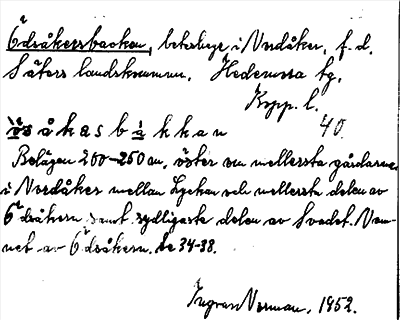 Ödsåkersbacken, beteshage i Nordåker, f. d.
Säters landskommun. Hedemora tg.
Kopp. l.
åkasbäkkan 40.
Belägen 200-250 m. öster om mellersta gårdarna
i Nordåker mellan Lyckan och mellersta delen av
Ödsåkern samt sydligaste delen av Svedet. Nam-
net av Ödsåkern. Se 34-38.
Ingvar Norman, 1952.